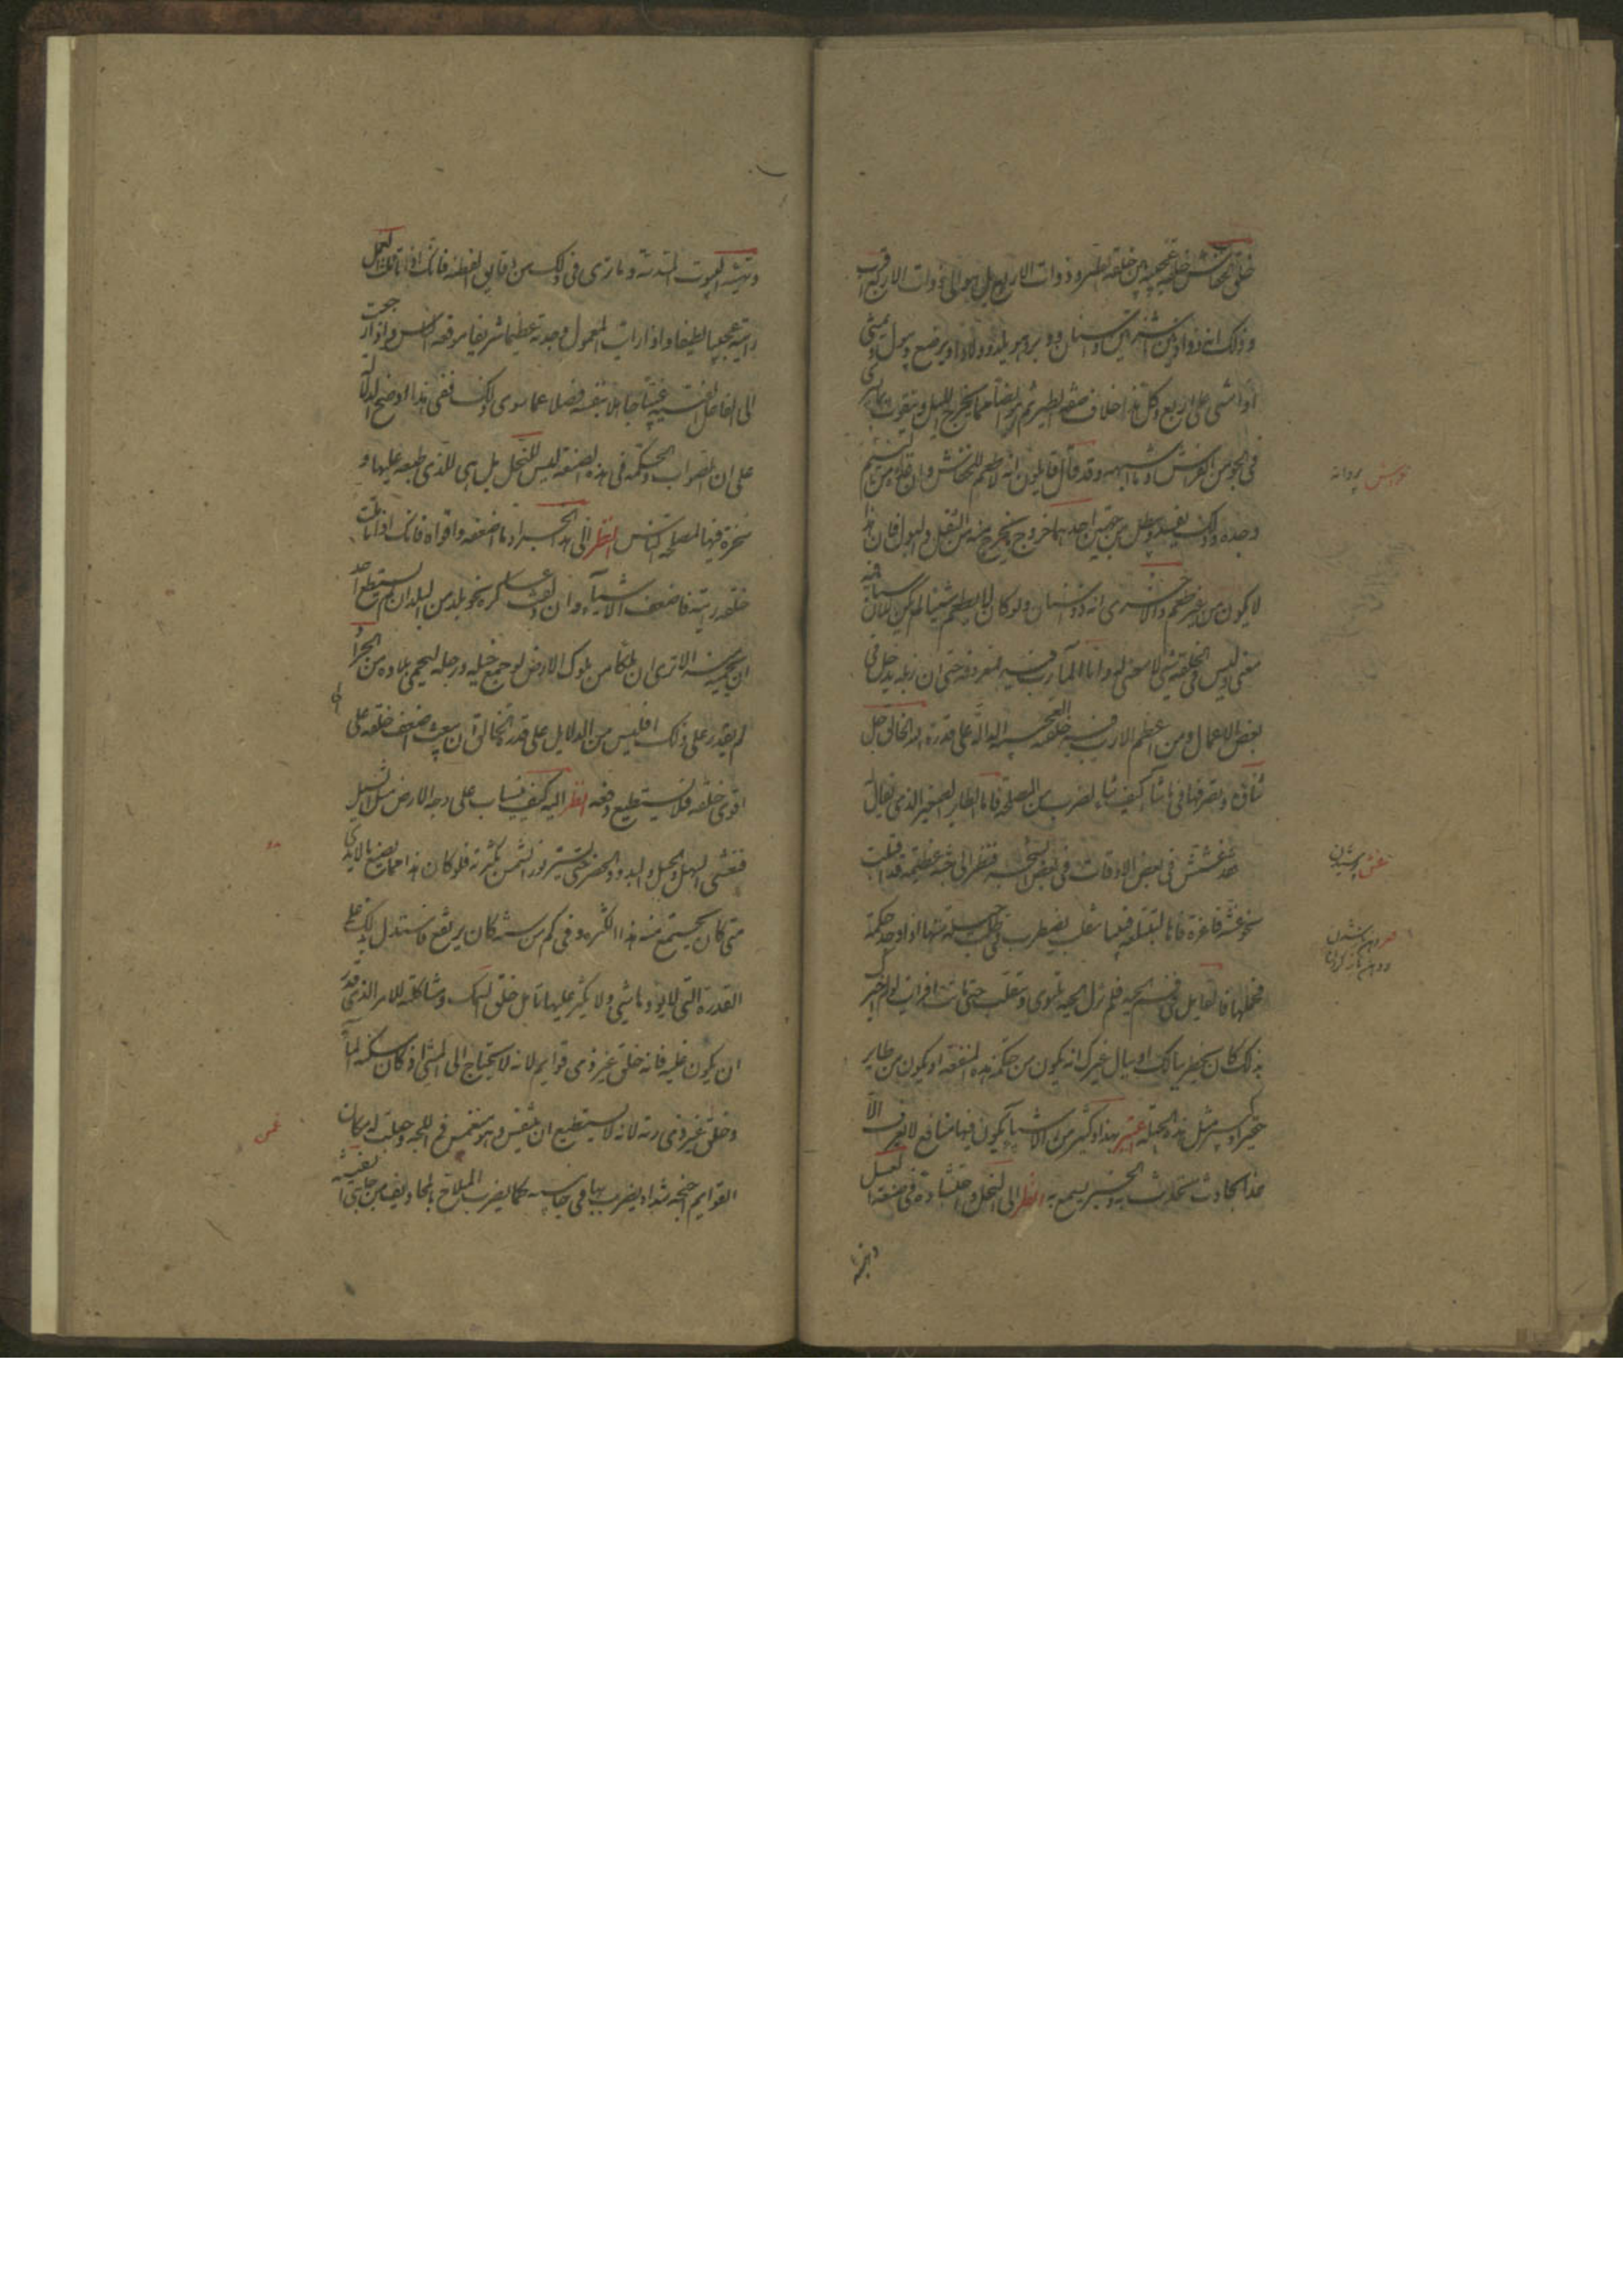 خلق الخفاش خلقة عجيبة بين خلقة الطير وذوات الاربع بل هو الى ذوات الاربع اقرب
وذلك انه ذو اذنين ناشزتين واسنان ووبر وهو يلد ولادا ويرضع ويبول ويمشى
اذا مشى على اربع وكل هذا خلاف صفة الطير ثم هو ايضا مما يخرج بالليل ويتقوت بما يسرى
فى الجو من الفراش وما اشبهه وقد قال قايلون انه لا طعم للخفاش وان غذاءه من النسيم
وحده وذلك يفسد ويبطل من جهتين احدهما خروج ما يخرج منه من الثفل والبول فان هذا
لا يكون من غير طعم والاخرى انه ذو اسنان ولو كان لا يطعم شيئا لم يكن للاسنان فيه
معنى وليس فى الخلقة شئ لا معنى له واما المآرب فيه فمعروفة حتى ان زبله يدخل فى
بعض الاعمال ومن اعظم الارب فيه خلقته العجيبة الدالة على قدرة الخالق جل
ثناؤه وتصرفها فيما شاء كيف شاء لضرب من المصلحة فاما الطاير الصغير الذى يقال
له ابن تمرة فقد عشش فى بعض الاوقات فى بعض الشجر فنظر الى حية عظيمة قد اقبلت
نحو عشه فاغرة فاها لتبتلعه فبينما هو يتقلب ويضطرب فى طلب حيلة منها اذا وجد حسكة
فحملها فالقاها فى فم الحية فلم تزل الحية تلتوى وتتقلب حتى ماتت افرايت لو لم اخبرك
بذلك كان يخطر ببالك او ببال غيرك انه يكون من حسكة هذه المنفعة او يكون من طاير
صغير او كبير مثل هذه الحيلة اعتبر بهذا وكثير من الاشياء يكون فيها منافع لا تعرف الا
بحادث يحدث به والخبر يسمع به انظر الى النحل واحتشاده فى صنعة العسل
وتهيئة
خفاش پروانه
وتهيئة البيوت المسدسة وما ترى فى ذلك من دقايق الفطنة فانك اذا تاملت العمل
رايته عجيبا لطيفا واذا رايت المعمول وجدته عظيما شريفا موقعه من الناس واذا رجعت
الى الفاعل الفيته غبيا جاهلا بنفسه فضلا عما سوى ذلك ففى هذا اوضح الدلالة
على ان الصواب والحكمة فى هذه الصنعة ليس للنحل بل هى للذى طبعه عليها و
سخره فيها لمصلحة الناس انظر الى هذا الجراد ما اضعفه واقواه فانك اذا تاملت
خلقه رايته كاضعف الاشياء وان دلفت عساكره نحو بلد من البلدان لم يستطع احد
ان يحميه منه الا ترى ان ملكا من ملوك الارض لو جمع خيله ورجله ليحمى بلاده من الجراد
لم يقدر على ذلك افليس من الدلايل على قدرة الخالق ان يبعث اضعف خلقه على
اقوى خلقه فلا يستطيع دفعه انظر اليه كيف ينساب على وجه الارض مثل السيل
فيغشى السهل والجبل والبدو والحضر حتى يستر نور الشمس بكثرته فلو كان هذا مما يصنع بالايدى
متى كان يجتمع منه هذه الكثرة وفى كم من سنة كان يرتفع فاستدل بذلك على
القدرة التى لا يؤودها شئ ولا يكثر عليها تامل خلق السمك ومشاكلته للامر الذى قدر
ان يكون عليه فانه خلق غير ذى قوايم لانه لا يحتاج الى المشى اذ كان مسكنه الماء
وخلق غير ذى رية لانه لا يستطيع ان يتنفس وهو منغمس فى اللجة وجعلت له مكان
القوايم اجنحة شداد يضرب بها فى جانبيه كما يضرب الملاح بالمجاديف من جانبى السفينة